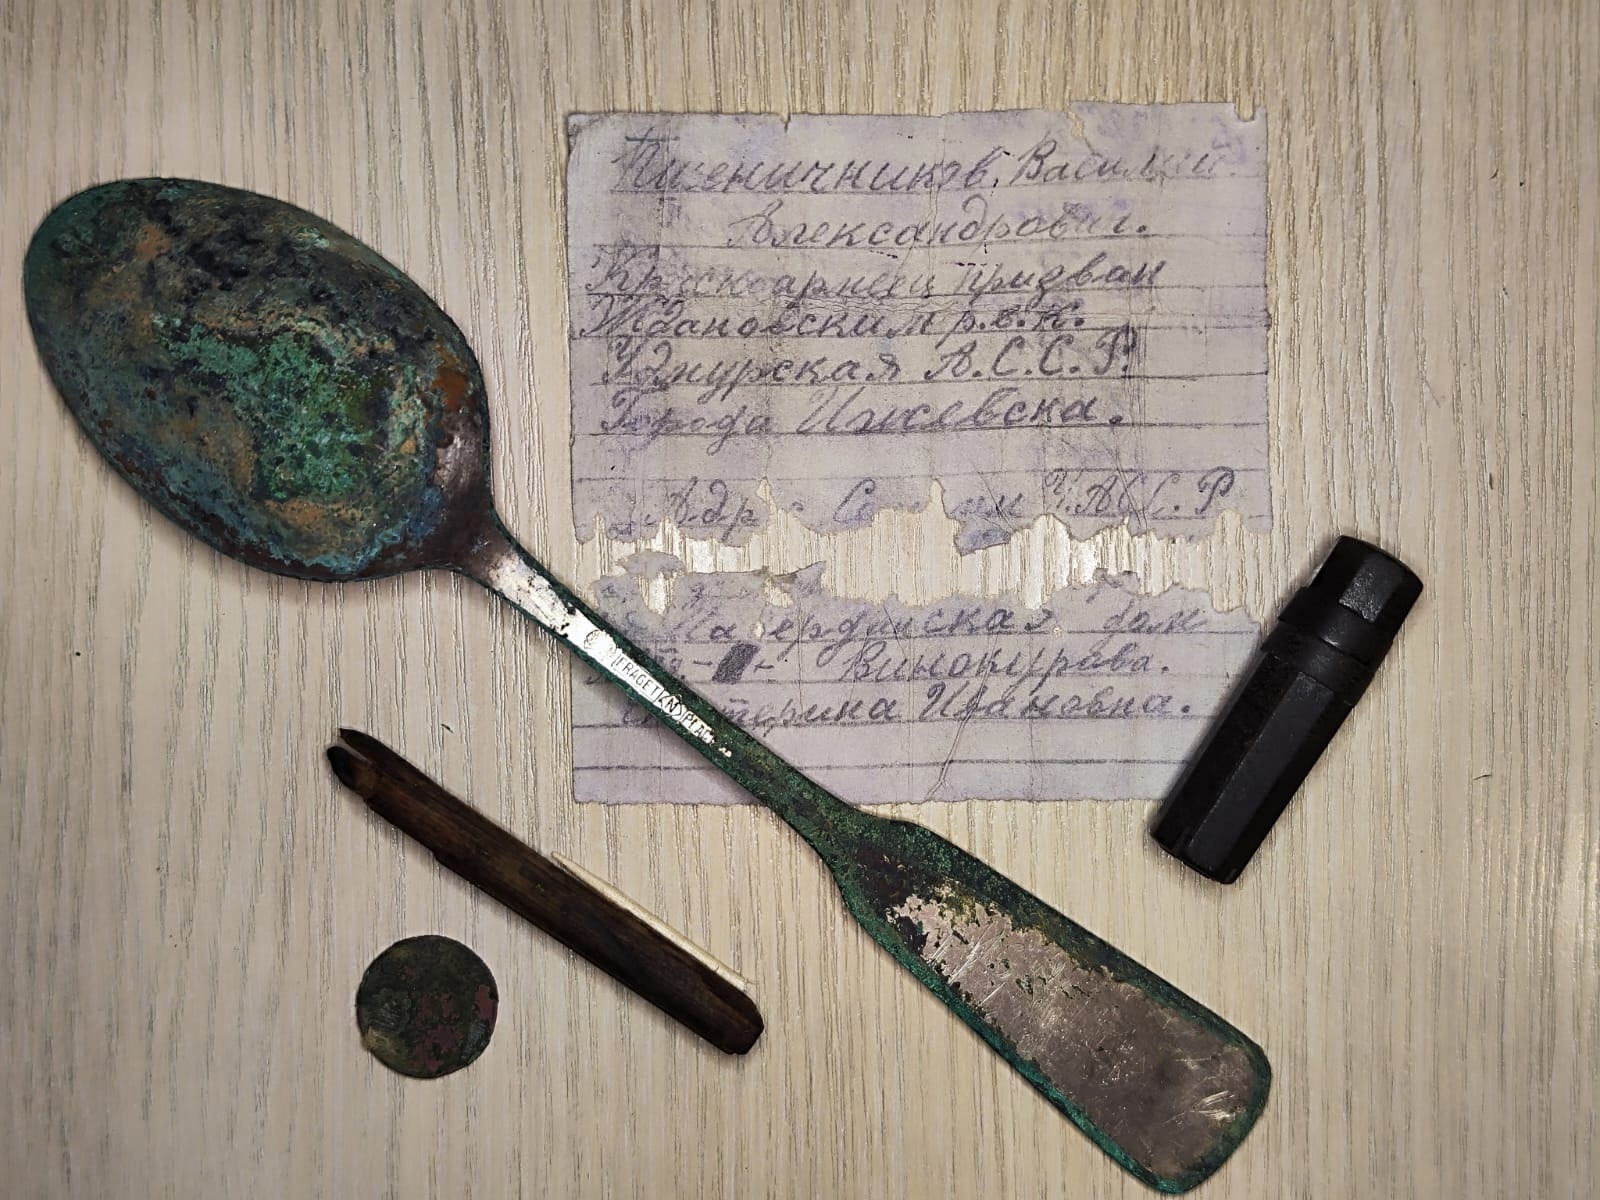 Пшеничников. Василий.
Александрович.
Красноармеец призван
Ждановским р.в.к.
Удмурская А.С.С.Р.
Города Ижевска.
У.АС.С.Р
дом
Винокурава.
Ивановна.
FRAGET(N)PLAQ